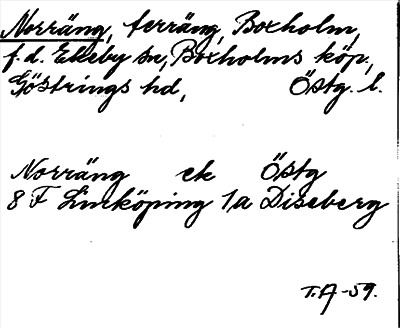 Norräng, terräng, Boxholm,
f.d. Ekeby sn, Boxholms köp.,
Göstrings hd, Östg. l.
Norräng ek Östg
8 F Linköping 1a Diseberg
T.A-59.